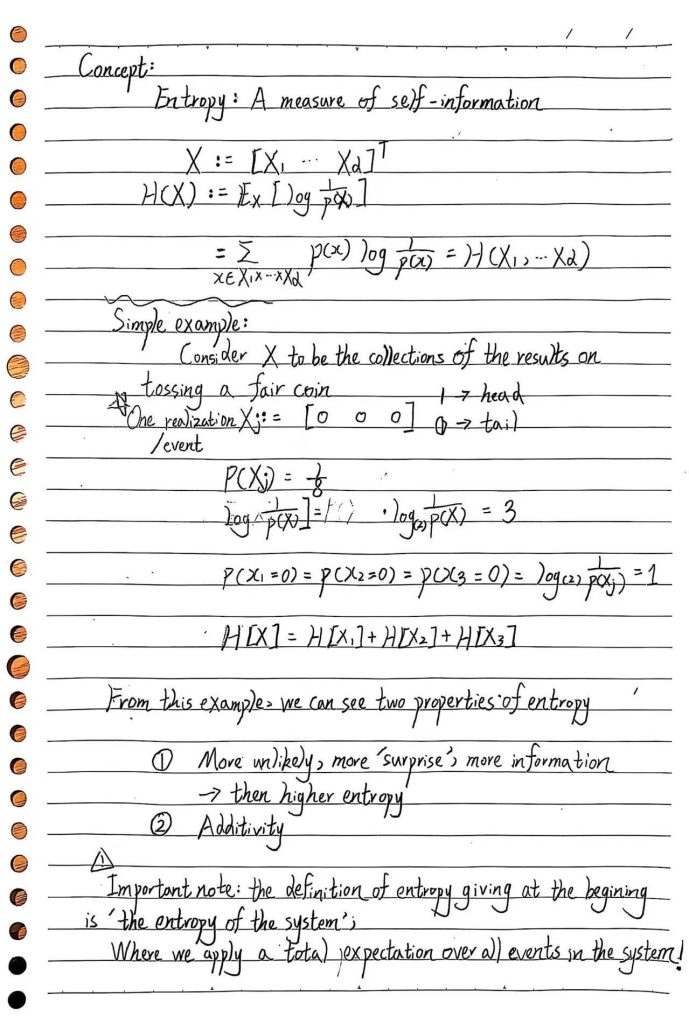 Concept:
Entropy: A measure of self-information
X := [X₁ ⋯ X_d]^T
H(X) := E_X [log 1/p(X)]
= Σ_{x∈X₁×⋯×X_d} p(x) log 1/p(x) = H(X₁, ⋯ X_d)
Simple example:
Consider X to be the collections of the results on
tossing a fair coin 1 → head
One realization X_j := [0 0 0] 0 → tail
/event
P(X_j) = 1/8
log 1/p(X)] = · log₍₂₎ 1/p(X) = 3
P(x₁=0) = p(x₂=0) = p(x₃=0) = log₍₂₎ 1/p(x_j) = 1
· H[X] = H[X₁] + H[X₂] + H[X₃]
From this example, we can see two properties of entropy
① More unlikely, more 'surprise', more information
→ then higher entropy
② Additivity
Important note: the definition of entropy giving at the begining
is 'the entropy of the system';
Where we apply a total expectation over all events in the system!